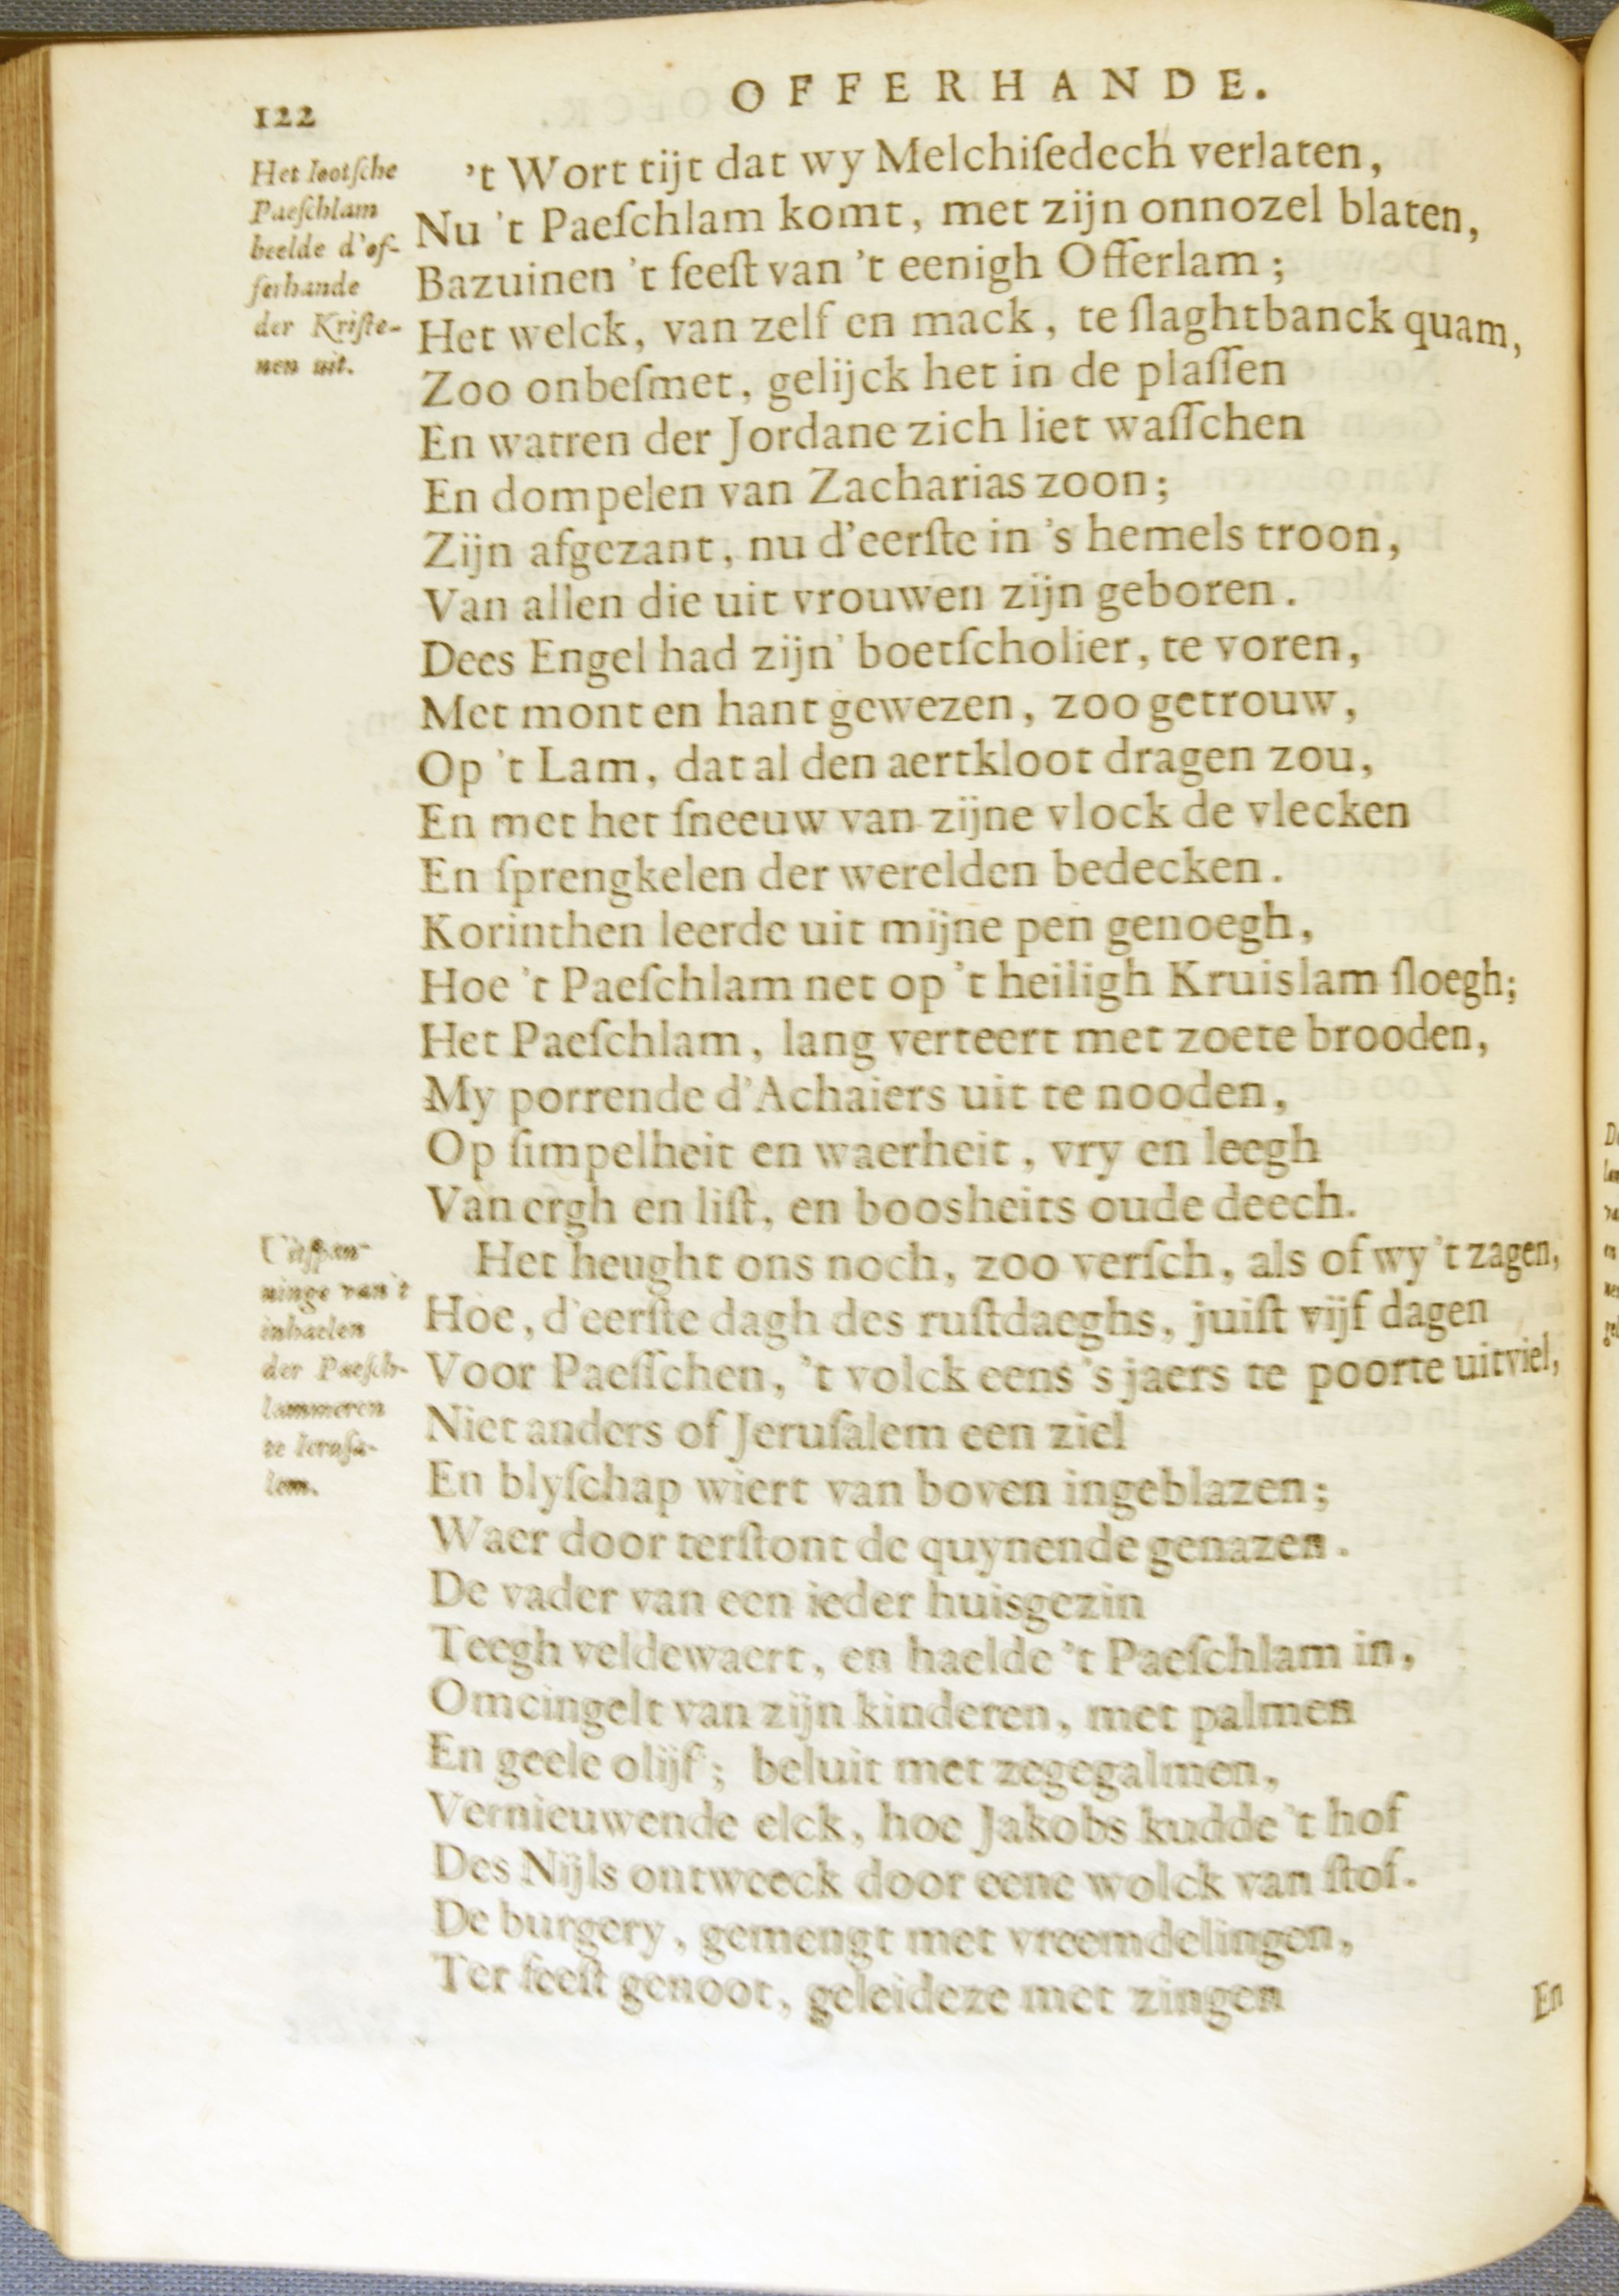 122
OFFERHANDE.
Het Jootſche
Paeſchlam
beelde d'of-
ferhande
der Kriſte-
nen uit.
't Wort tijt dat wy Melchiſedech verlaten,
Nu 't Paeſchlam komt, met zijn onnozel blaten,
Bazuinen 't feeſt van 't eenigh Offerlam;
Het welck, van zelf en mack, te ſlaghtbanck quam,
Zoo onbeſmet, gelijck het in de plaſſen
En watren der Jordane zich liet waſſchen
En dompelen van Zacharias zoon;
Zijn afgezant, nu d'eerſte in 's hemels troon,
Van allen die uit vrouwen zijn geboren.
Dees Engel had zijn' boetſcholier, te voren,
Met mont en hant gewezen, zoo getrouw,
Op 't Lam, dat al den aertkloot dragen zou,
En met het ſneeuw van zijne vlock de vlecken
En ſprengkelen der werelden bedecken.
Korinthen leerde uit mijne pen genoegh,
Hoe 't Paeſchlam net op 't heiligh Kruislam ſloegh;
Het Paeſchlam, lang verteert met zoete brooden,
My porrende d'Achaiers uit te nooden,
Op ſimpelheit en waerheit, vry en leegh
Van ergh en liſt, en boosheits oude deech.
Uitſpan-
ninge van 't
inhaelen
der Paeſch-
lammeren
te Ieruſa-
lem.
Het heught ons noch, zoo verſch, als of wy 't zagen,
Hoe, d'eerſte dagh des ruſtdaeghs, juiſt vijf dagen
Voor Paeſſchen, 't volck eens 's jaers te poorte uitviel,
Niet anders of Jeruſalem een ziel
En blyſchap wiert van boven ingeblazen;
Waer door terſtont de quynende genazen.
De vader van een ieder huisgezin
Teegh veldewaert, en haelde 't Paeſchlam in,
Omcingelt van zijn kinderen, met palmen
En geele olijf; beluit met zegegalmen,
Vernieuwende elck, hoe Jakobs kudde 't hof
Des Nijls ontweeck door eene wolck van ſtof.
De burgery, gemengt met vreemdelingen,
Ter feeſt genoot, geleideze met zingen
En